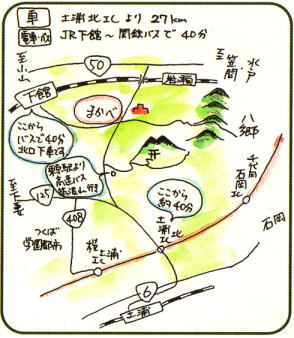 車 土浦北ICより 27km
電車・バス JR下館〜関鉄バスで40分
至小山
50
至笠間・水戸
下館
岩瀬
まかべ
八郷
ここから
バスで40分
北口下車です
至下妻
125
東京駅より
高速バス
ここから
約40分
千代田
石岡
IC
408
土浦北
IC
石岡
つくば
学園都市
桜土浦
IC
6
土浦